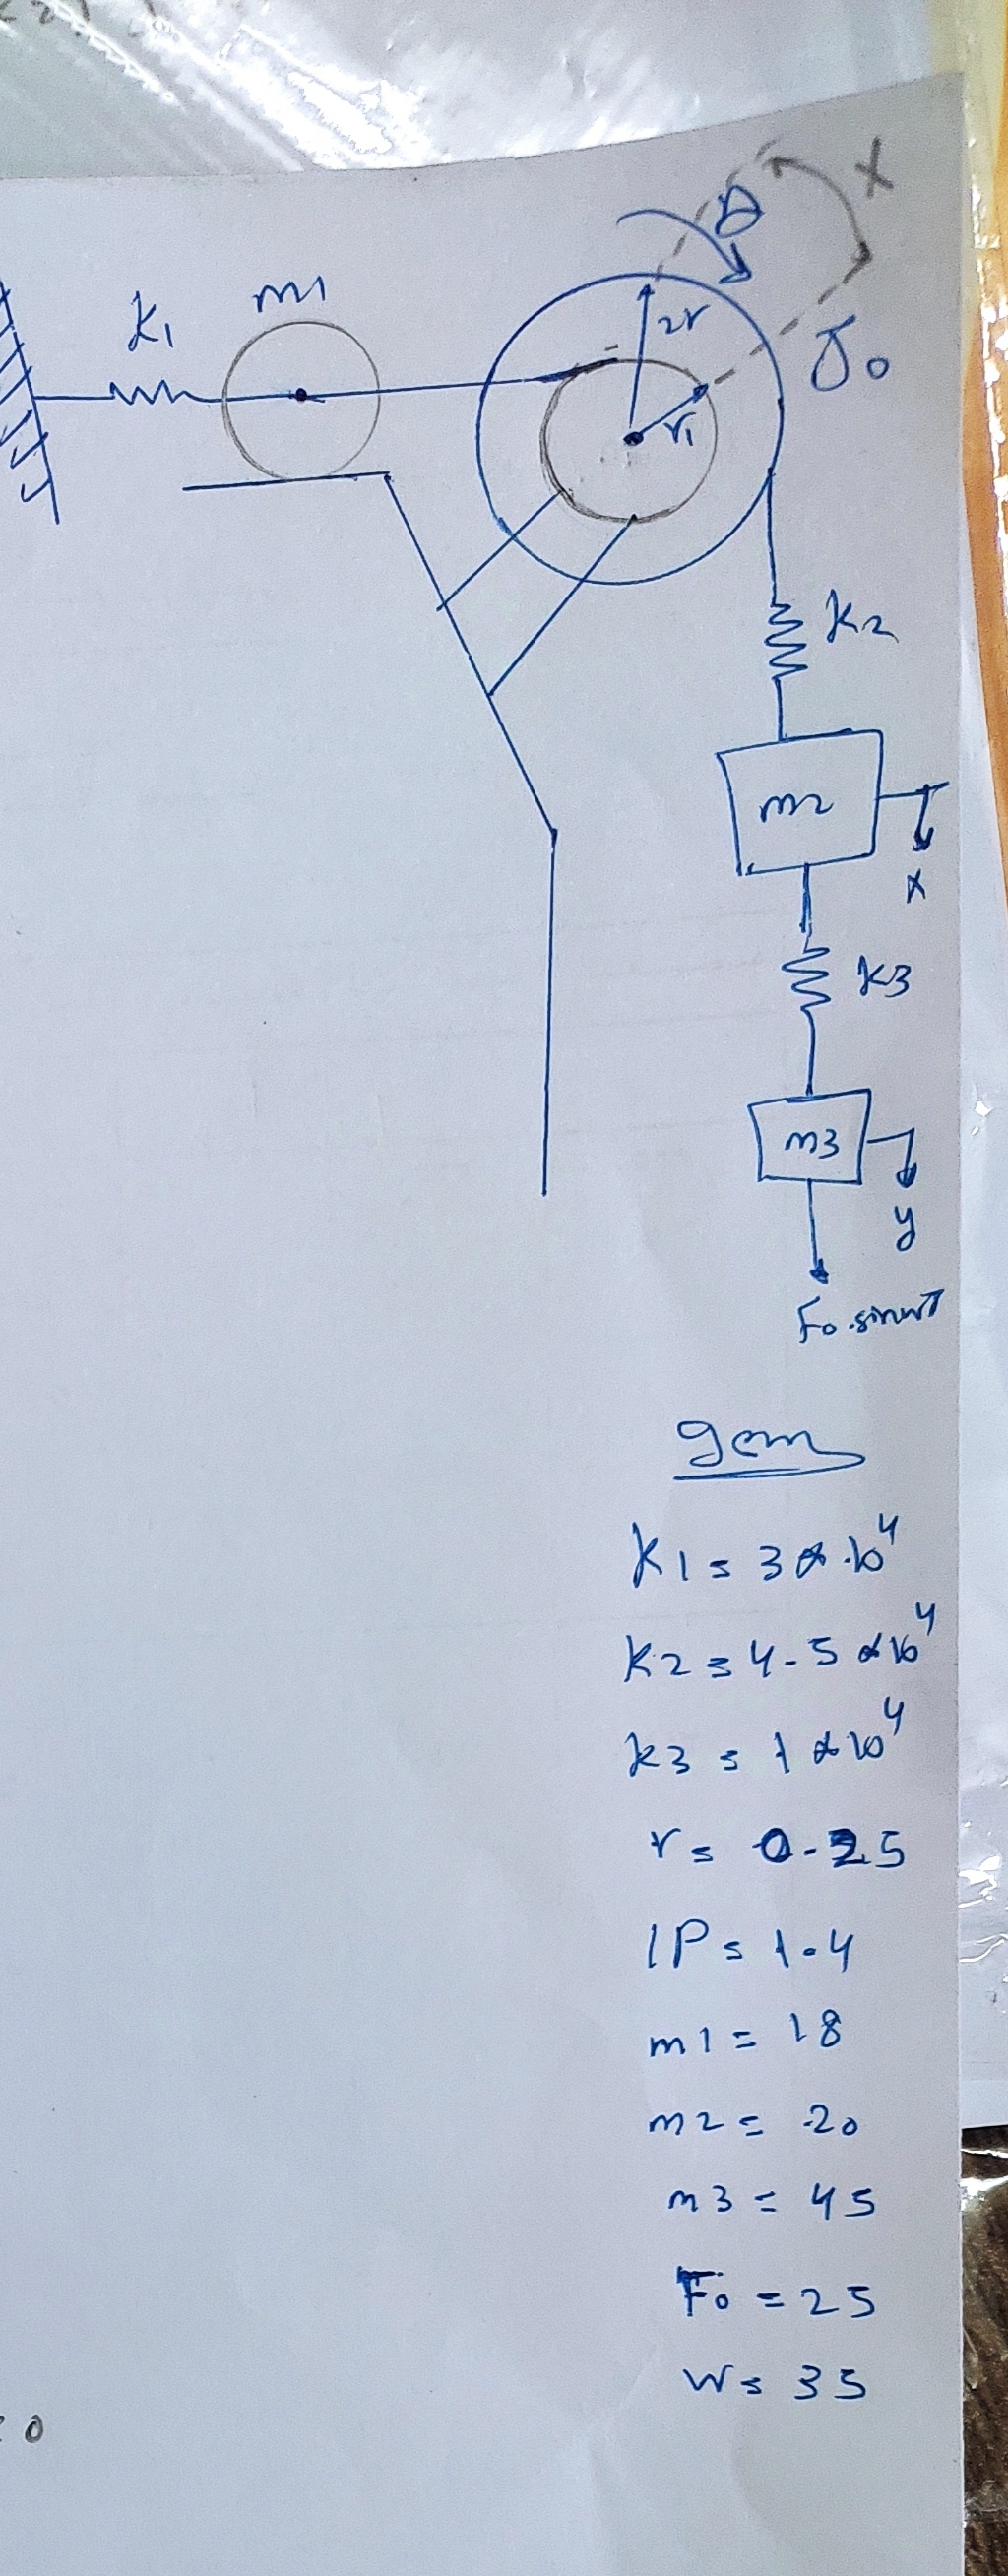 X
θ
m1
k1
2r
J0
r1
k2
m2
x
k3
m3
y
F0.sinwt
K1 = 3 * 10^4
K2 = 4.5 * 10^4
k3 = 1 * 10^4
r = 0.25
IP = 1.4
m1 = 18
m2 = 20
m3 = 45
F0 = 25
W = 35
0